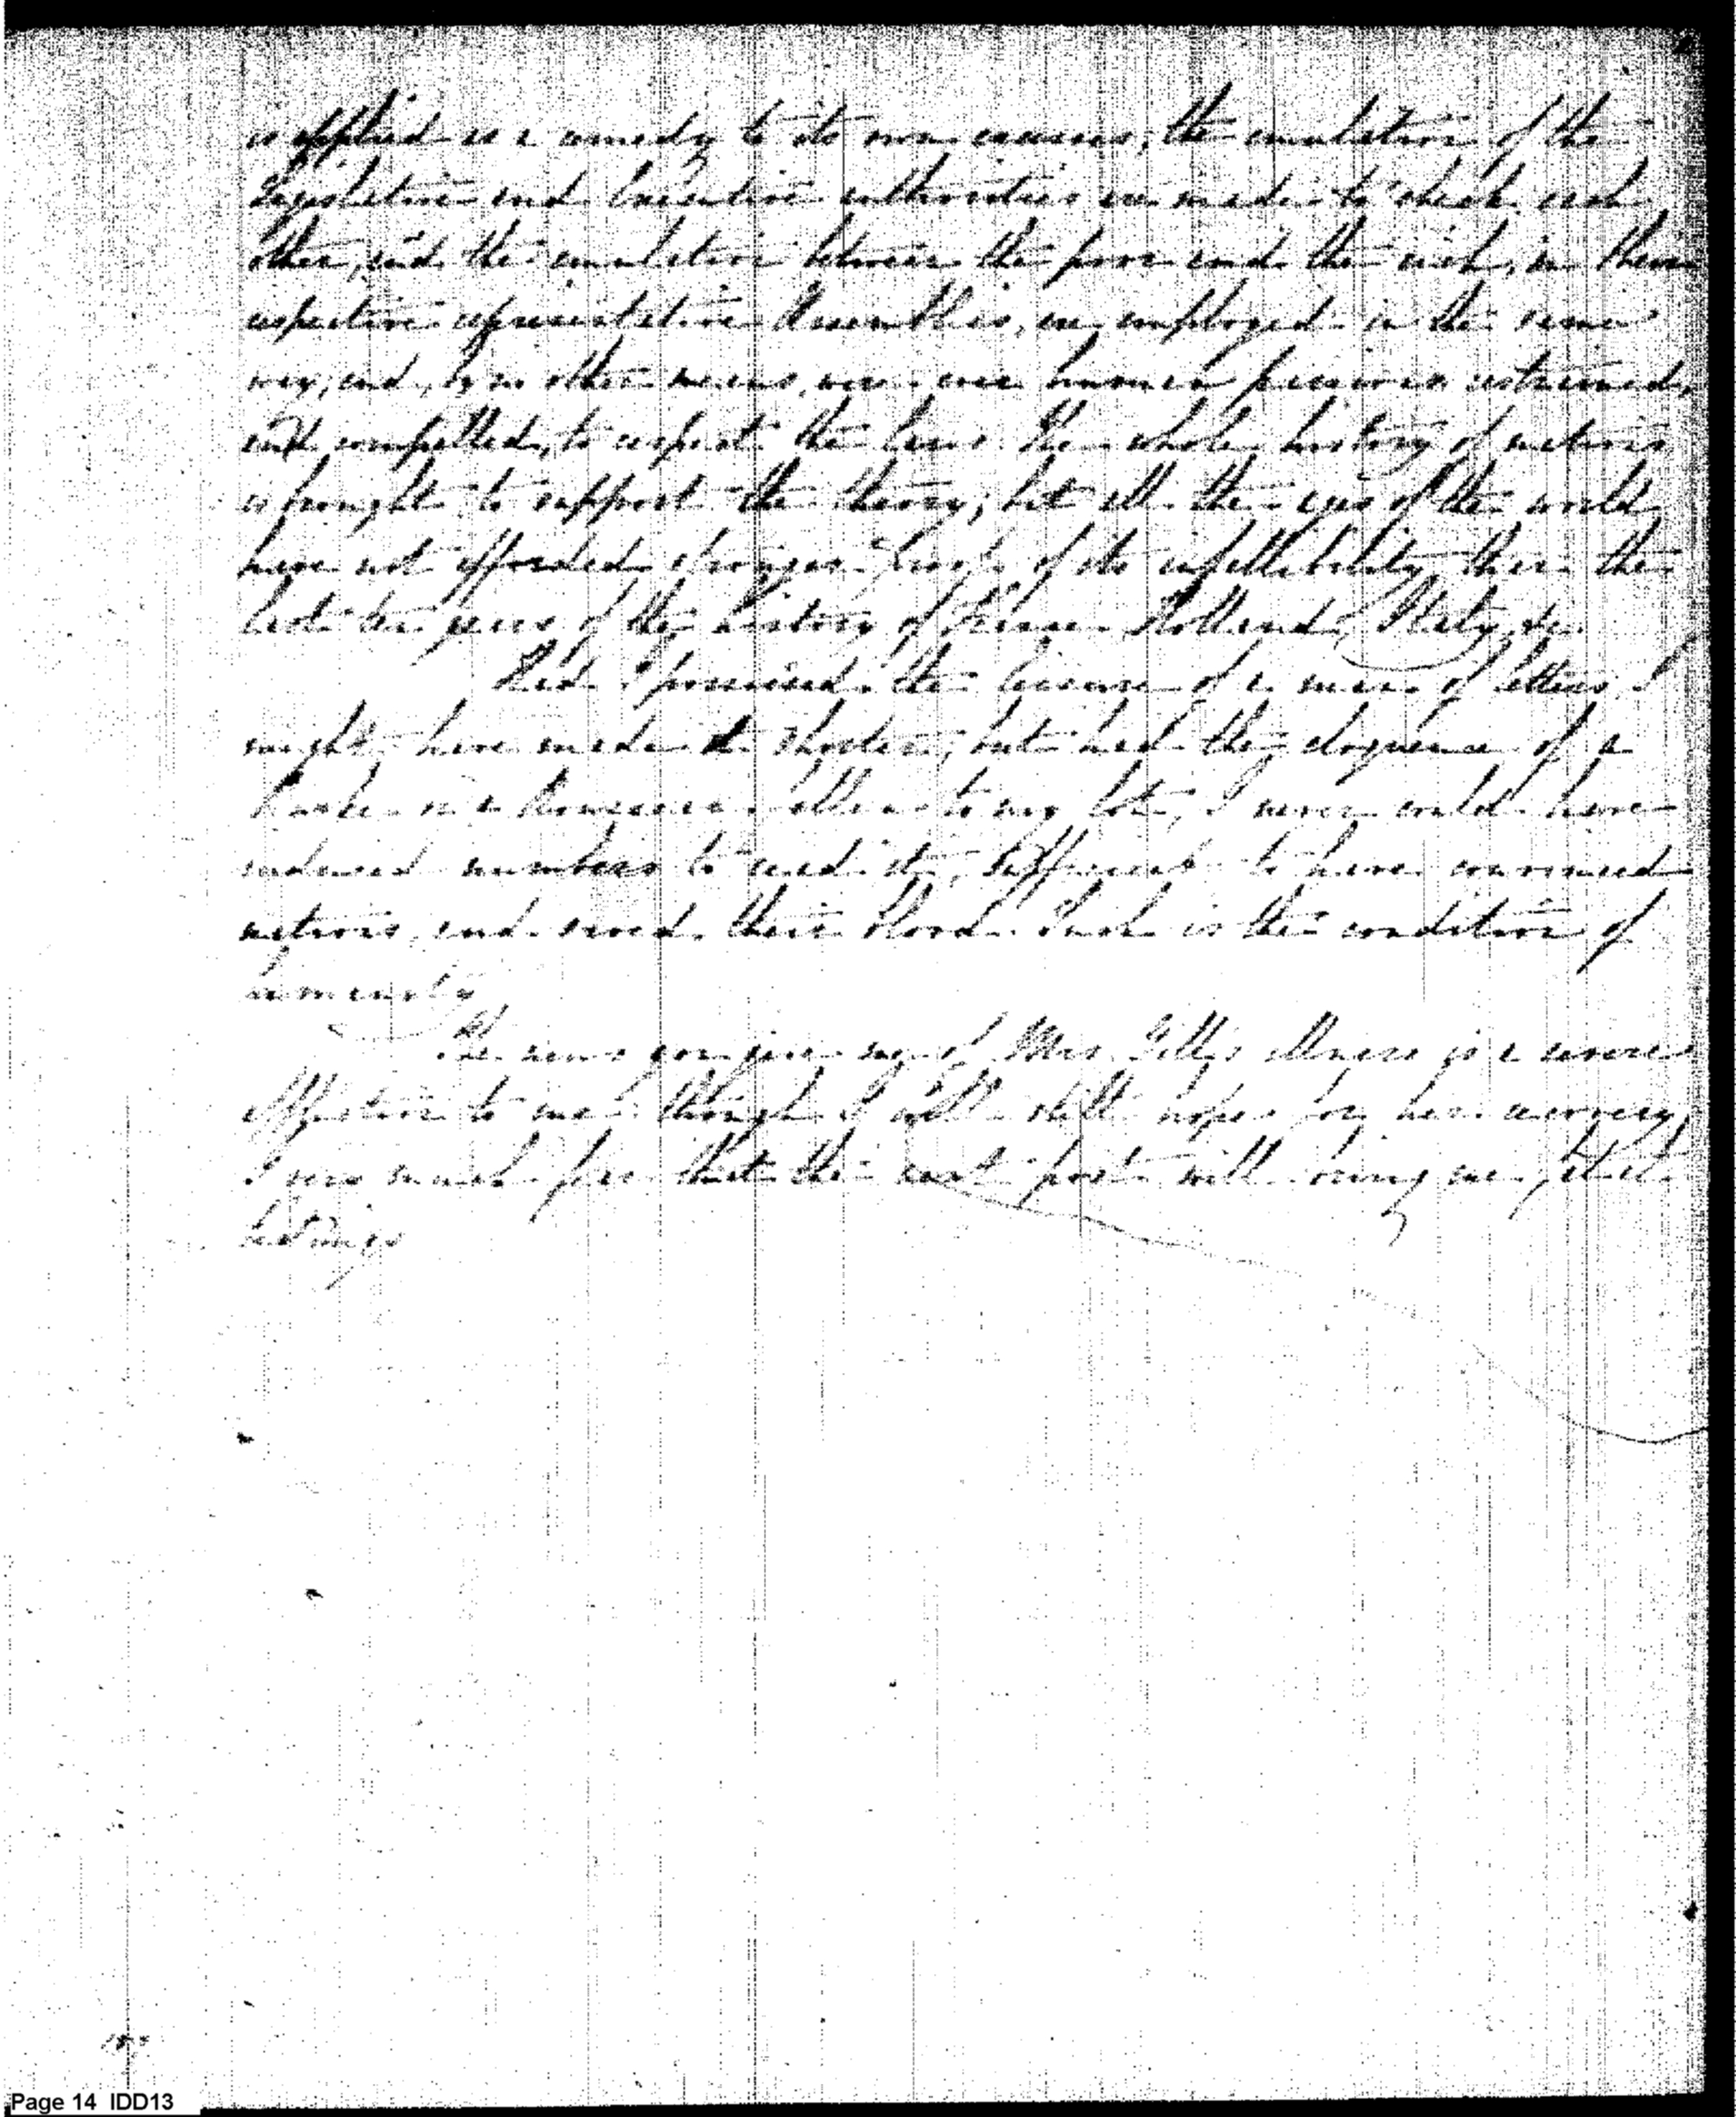 is applied as a remedy to its own excesses; the emulation of the
Legislative and Executive authorities are made to check each
other, and the emulation between the poor and the rich, in their
respective representative Assemblies, are employed in the same
way; and, by no other means, were ever human passions restrained,
and compelled, to respect the laws. The whole history of nations
is brought to support the theory; but all the ages of the world
have not afforded stronger proofs of its infallibility than the
last ten years of the history of France Holland, Italy &c.
Had I possessed the leisure of a man of letters, I
might have made it shorter; but had the eloquence of a
or a to my lot, I never could have
induced numbers to read it, sufficient to have convinced
nations, and saved their blood. Such is the condition of
humanity
The news you give me of Mrs. illness is a severe
Affliction to me: though I will still hope for her recovery,
I very much fear that the next post will bring me fatal
tidings
Page 14 IDD13